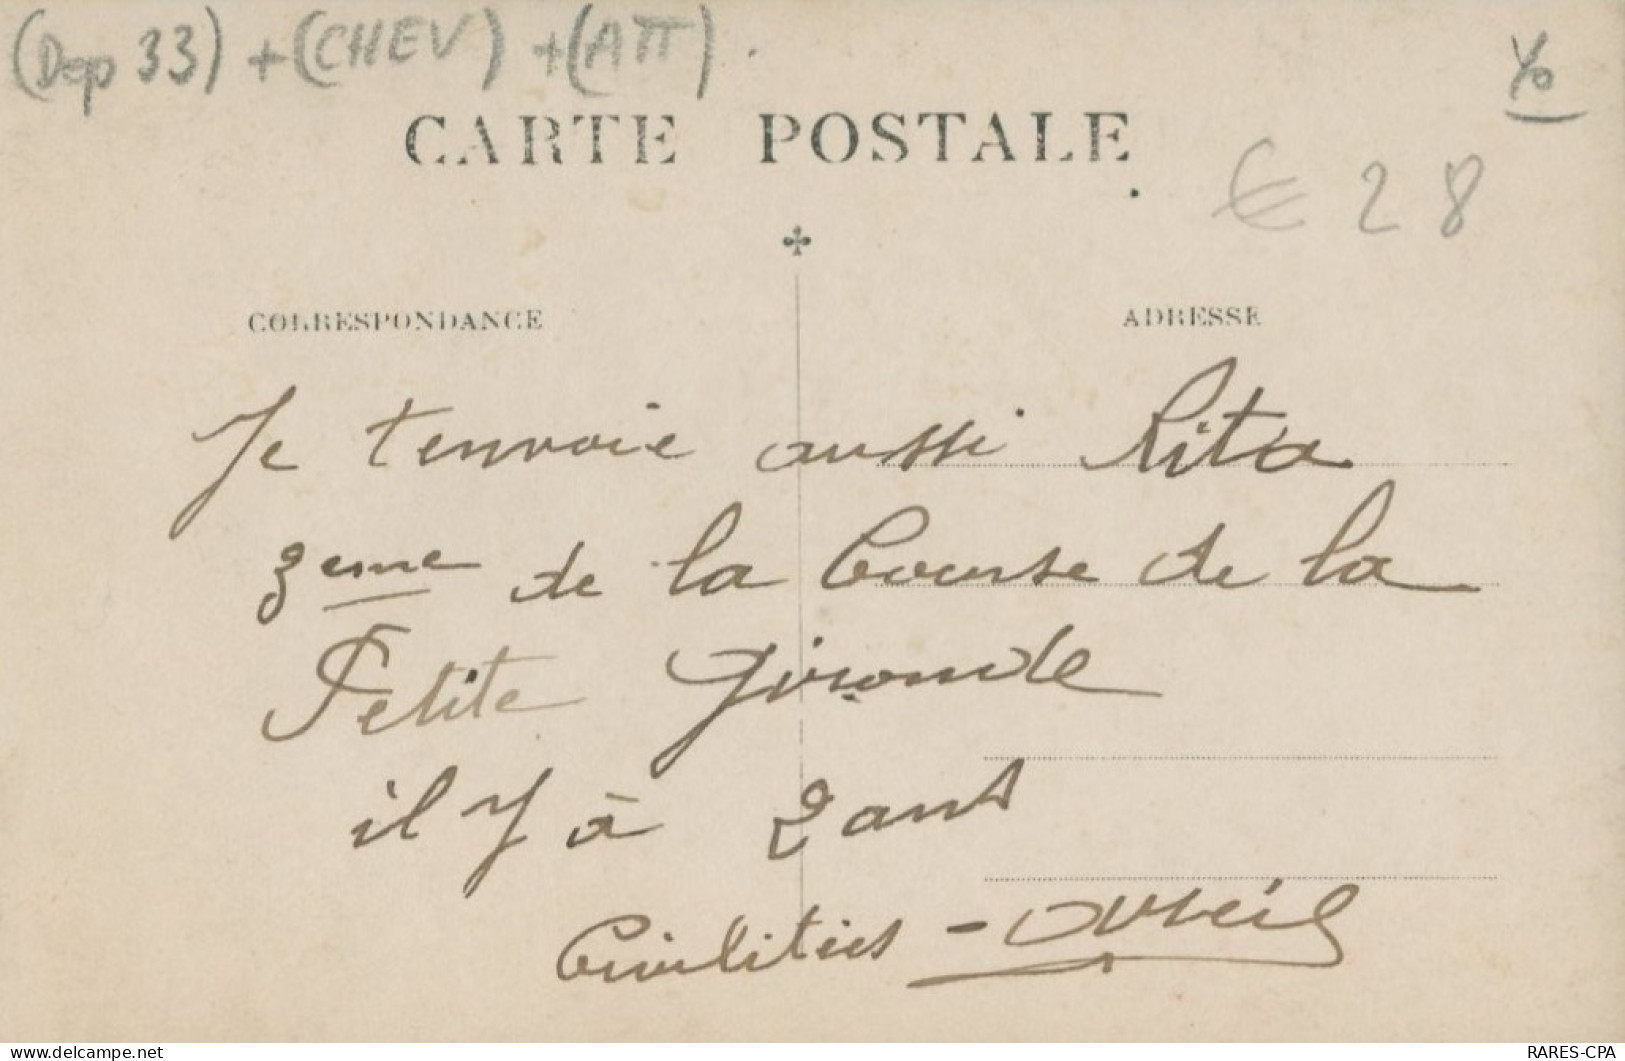 (Dep 33) + (CHEV) + (ATT).
Yo
CARTE POSTALE
€ 28
CORRESPONDANCE
ADRESSE
Je t'envoie aussi Rita
3eme de la Course de la
Petite Gironde
il y à 2 ans
Civilities -
delcampe.net
RARES-CPA